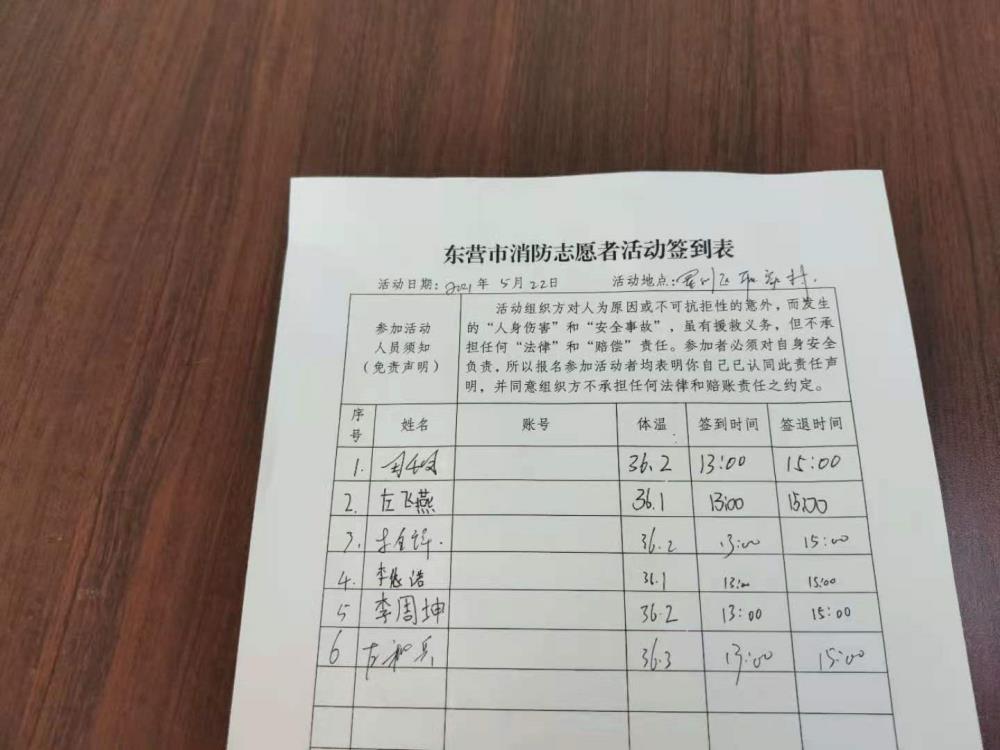 东营市消防志愿者活动签到表
活动日期：2021年 5月 22日 活动地点：
参加活动
人员须知
（免责声明）
活动组织方对人为原因或不可抗拒性的意外，而发生
的“人身伤害”和“安全事故”，虽有援救义务，但不承
担任何“法律”和“赔偿”责任。参加者必须对自身安全
负责，所以报名参加活动者均表明你自己已认同此责任声
明，并同意组织方不承担任何法律和赔账责任之约定。
序号 姓名 账号 体温 签到时间 签退时间
1. 36.2 13:00 15:00
2. 左飞燕 36.1 13:00 15:00
3. 36.2 13:00 15:00
4. 36.1 13:00 15:00
5 李周坤 36.2 13:00 15:00
6 36.3 13:00 15:00